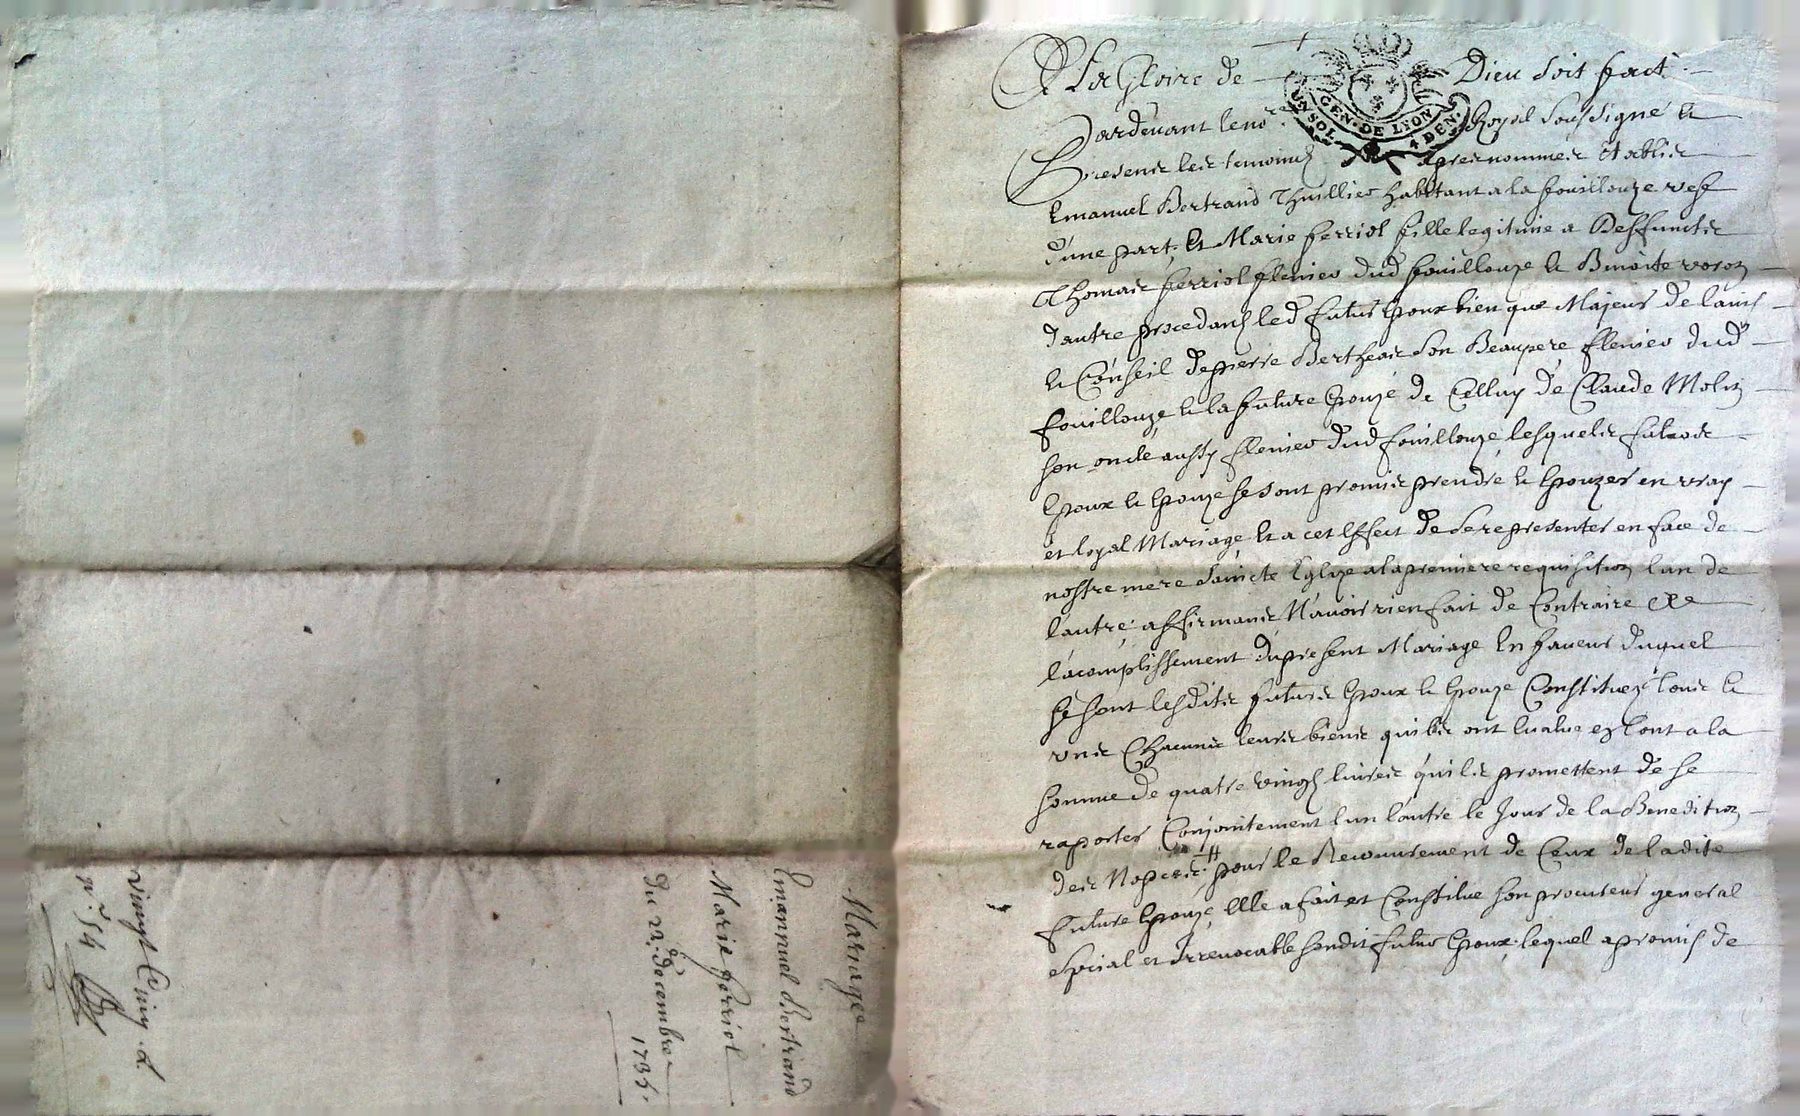 A La Gloire de Dieu soit fait
GEN. DE LYON
UN SOL. 4 DEN.
Pardevant le no.re Royal soussigné et
Presents les temoins apres nommés establis
Emanuel Bertrand Thuillier habitant a la fouillouze vesf
d'une part, et Marie ferriol fille legitime a Deffuncts
Thomas ferriol dud fouillouze et Benoite
d'autre procedans led futur Epoux bien que Majeur de l'avis
et Conseil de pierre Bertheas son Beaupere dud
fouillouze et la future Epouze de Celluy de Claude Molin
son oncle aussy dud fouillouze, lesquels futurs
Epoux et Epouze se sont promis prendre et Epouzer en vray
et loyal Mariage et a cet Effect de se representer en face de
nostre mere saincte Eglize a la premiere requisition l'un de
l'autre, affirmants N'avoir rien fait de Contraire a
l'acomplissement du present Mariage En faveur duquel
se sont lesdits futurs Epoux et Epouze Constitués tous et
uns Chacuns leurs biens qu'ils ont a la
somme de quatre vingt livres qu'ils promettent de se
raporter Conjointement l'un l'autre le Jour de la Benediction
des Nopces, pour le Recouvrement de Ceux de ladite
future Epouze, Elle a fait et Constitue son procureur general
special et Irrevocable sondit futur Epoux, lequel a promis de
Mariage
Emannuel Bertrand
Marie ferriol
Du 21.e decembre
1735.
vingt Cinq
n.o 54